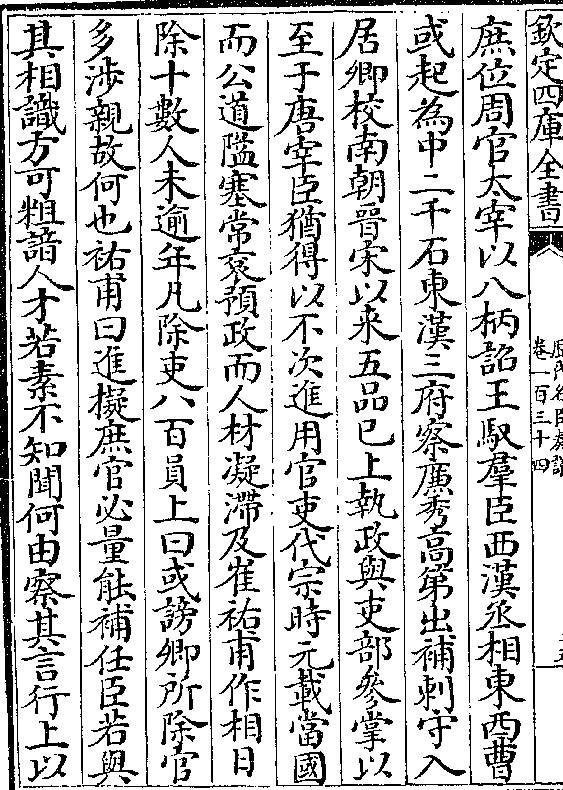 欽定四庫全書
卷一百三十四
庶位周官太宰以八柄詔王馭羣臣西漢丞相東西曹
或起為中二千石東漢三府察廉秀高第出補刺守入
居卿校南朝晉宋以来五品已上執政與吏部參掌以
至于唐宰臣猶得以不次進用官吏代宗時元載當國
而公道隘塞常衮預政而人材凝滯及崔祐甫作相日
除十數人未逾年凡除吏八百員上曰或謗卿所除官
多涉親故何也祐甫曰進擬庶官必量能補任臣若與
其相識方可粗諳人才若素不知聞何由察其言行上以